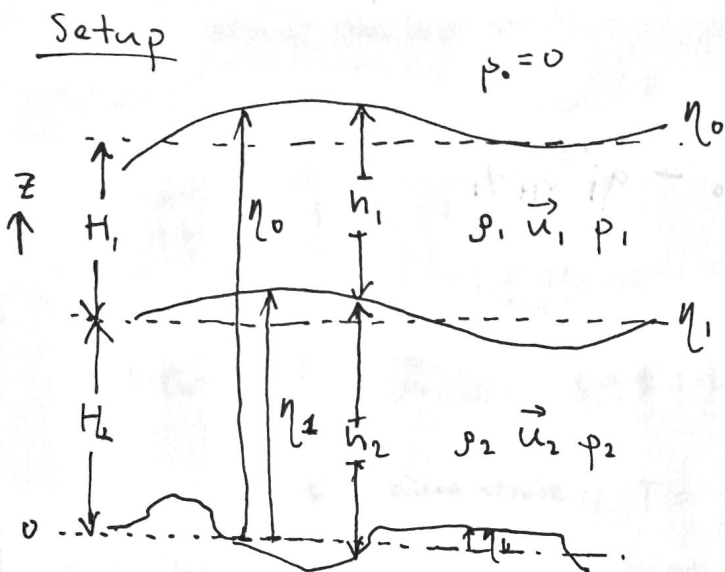 Setup
p₀ = 0
η₀
z
H₁
η₀
h₁
ρ₁ u⃗₁ p₁
η₁
H₂
η₁
h₂
ρ₂ u⃗₂ p₂
0
η₂